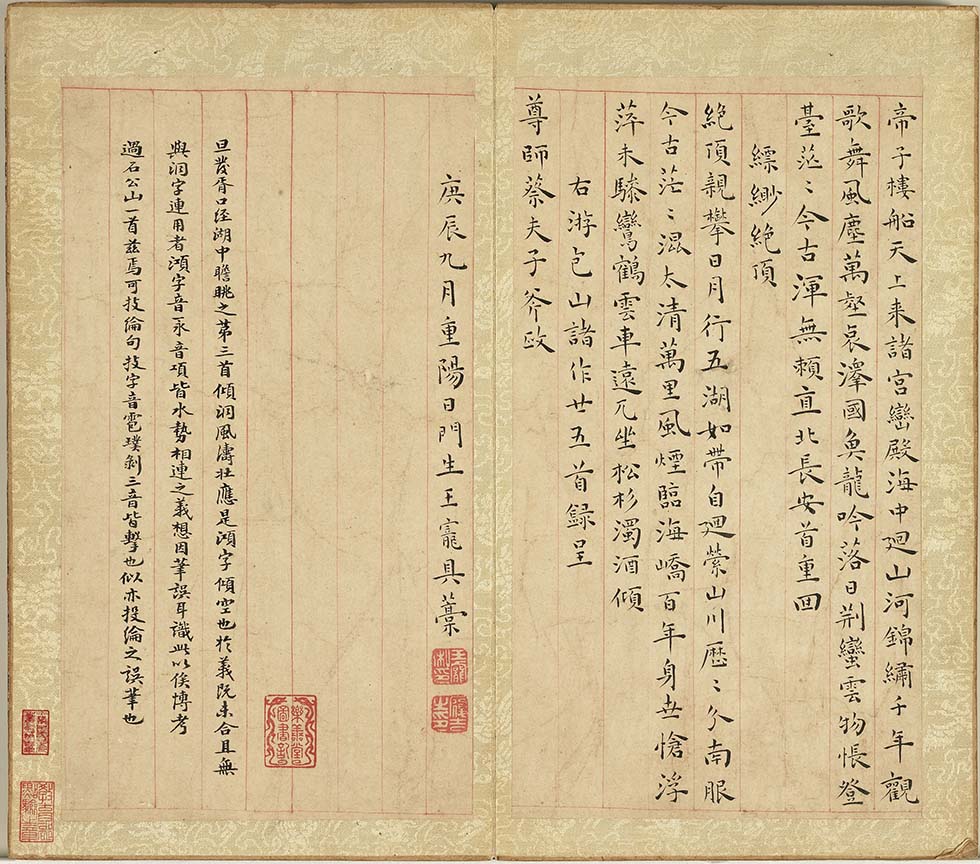 帝子樓船天上来諸宮巒殿海中迴山河錦繡千年觀
歌舞風塵萬壑哀澤國魚龍吟落日荆蠻雲物悵登
臺茫〻今古渾無頼直北長安首重回
縹緲絶頂
絶頂親攀日月行五湖如帶自迴縈山川歷〻分南服
今古茫〻混太清萬里風煙臨海嶠百年身世愴浮
萍未驂鸞鶴雲車遠兀坐松杉濁酒傾
右游包山諸作廿五首録呈
尊師蔡夫子斧政
庚辰九月重陽日門生王寵具藁
旦發胥口經湖中瞻眺之第三首傾洞風濤壮應是澒字傾空也於義既未合且無
與洞字連用者澒字音汞音項皆水勢相連之義想因筆誤耳識此以俟博考
過石公山一首兹焉可技綸句技字音雹璞剝三音皆擊也似亦投綸之誤筆也